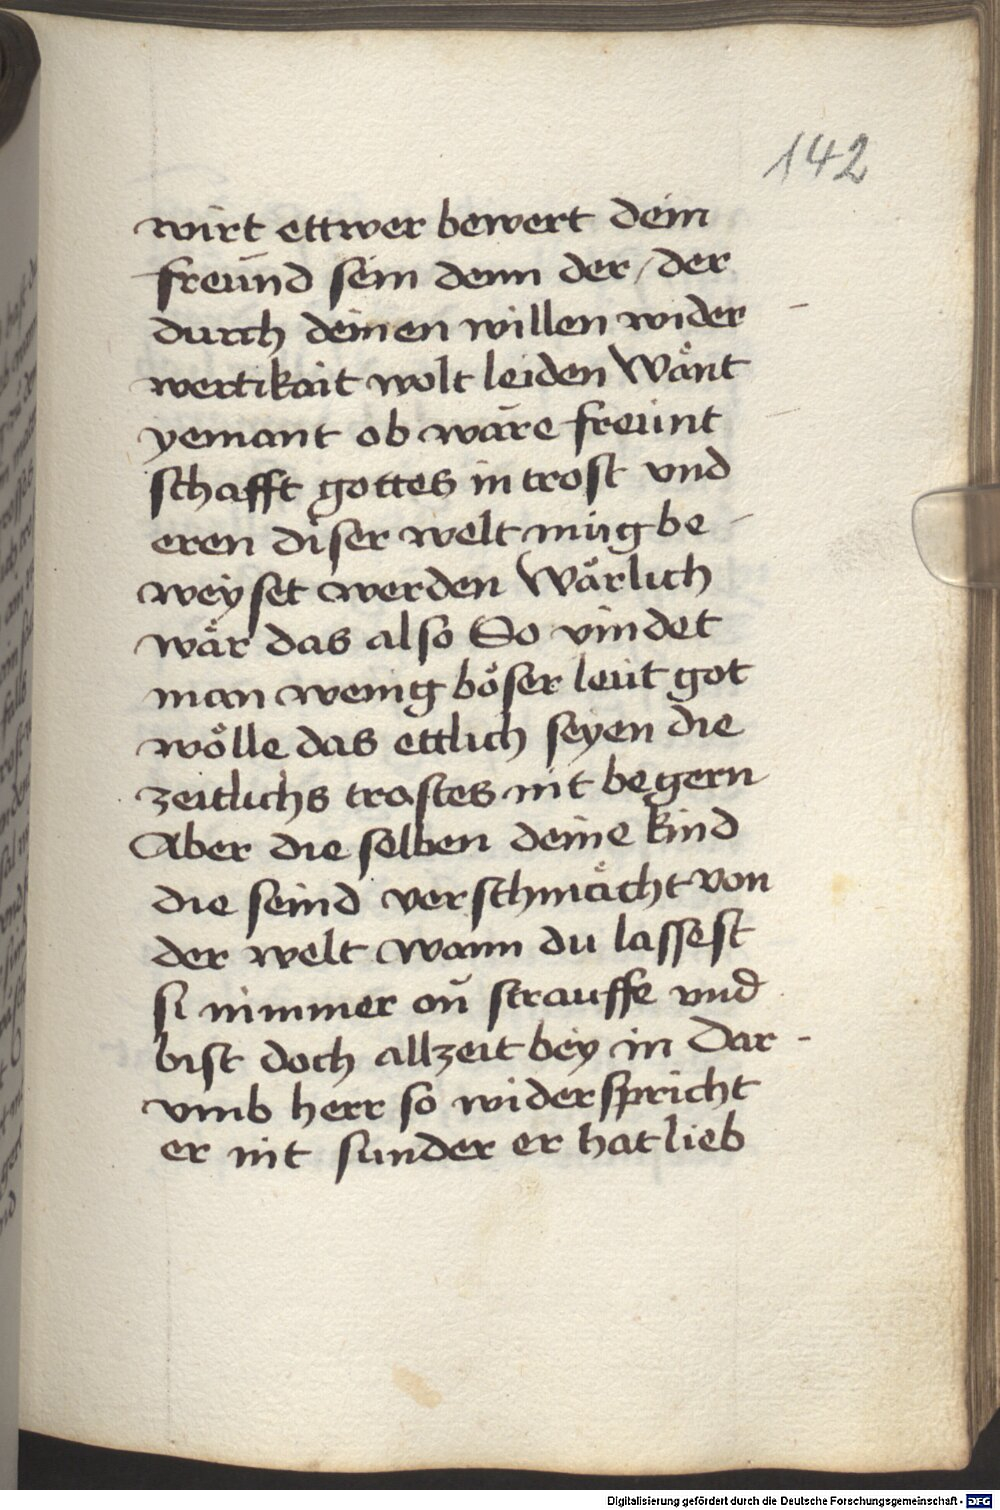 142
wirt ettwer bewert dein
freünd sein denn der / der
durch deinen willen wider -
wertikait wolt leiden Wånt
yemant ob wäre freünt -
schafft gottes in trost vnd
eren diser welt müg be -
weyset werden Wårlich
wår das also So vindet
man wenig böser leüt got
wölle das ettlich seyen die
zeitlichs trostes nit begern
Aber die selben deine kind
die seind verschmächt von
der welt wann du lassest
si nimmer on straüffe vnd
bist doch allzeit bey in Dar -
vmb herr so widerspricht
er nit sunder er hat lieb
Digitalisierung gefördert durch die Deutsche Forschungsgemeinschaft - DFG